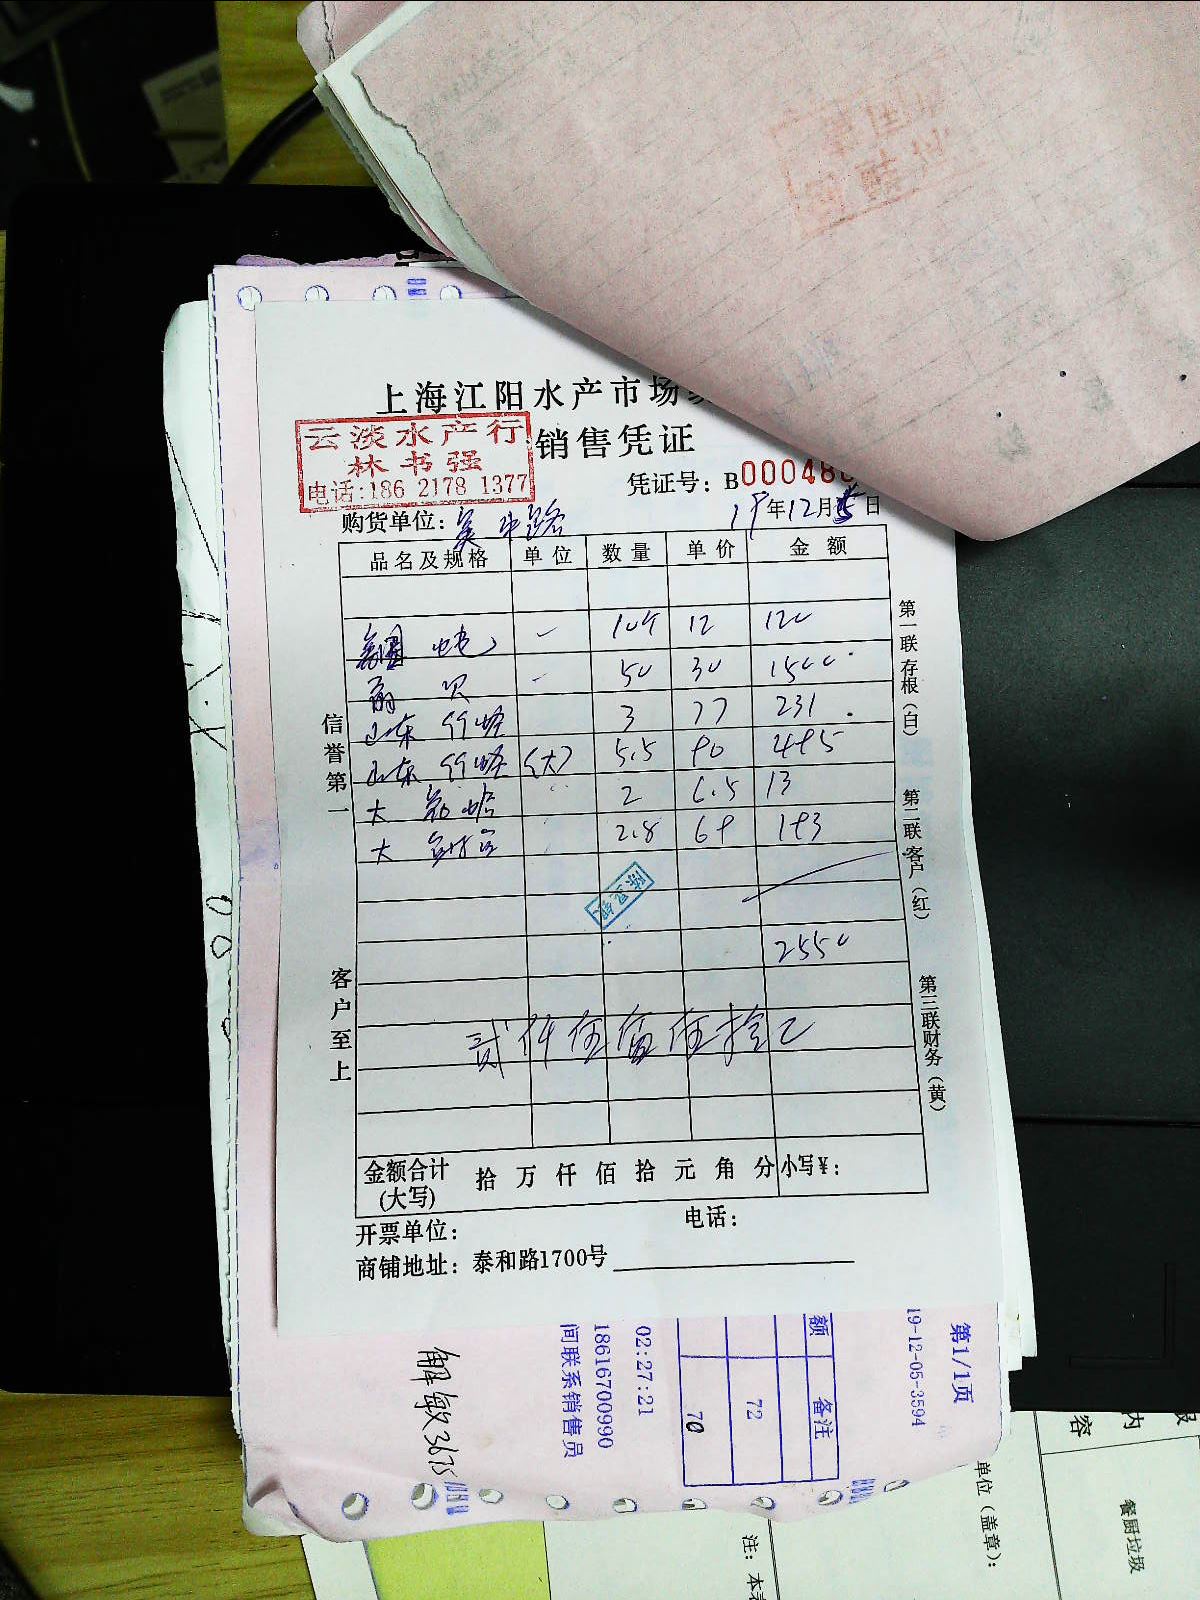 上海江阳水产市场
销售凭证
云淡水产行
林书强
电话:186 2178 1377
凭证号: B00048
购货单位: 吴中路
19年12月5日
品名及规格 单位 数量 单价 金额
12 120
50 30 1500
山东 3 77 231
山东 (大) 5.5 90 495
大 2 6.5 13
大 2.8 69 193
2550
贰仟伍佰伍拾
金额合计(大写) 拾 万 仟 佰 拾 元 角 分 小写¥:
开票单位: 电话:
商铺地址: 泰和路1700号
信誉第一
客户至上
第一联存根(白)
第二联客户(红)
第三联财务(黄)
第1/1页
19-12-05-3594
额 备注
72
70
02:27:21
18616700990
间联系销售员
解敏3675
内容
单位(盖章):
餐厨垃圾
注: 本